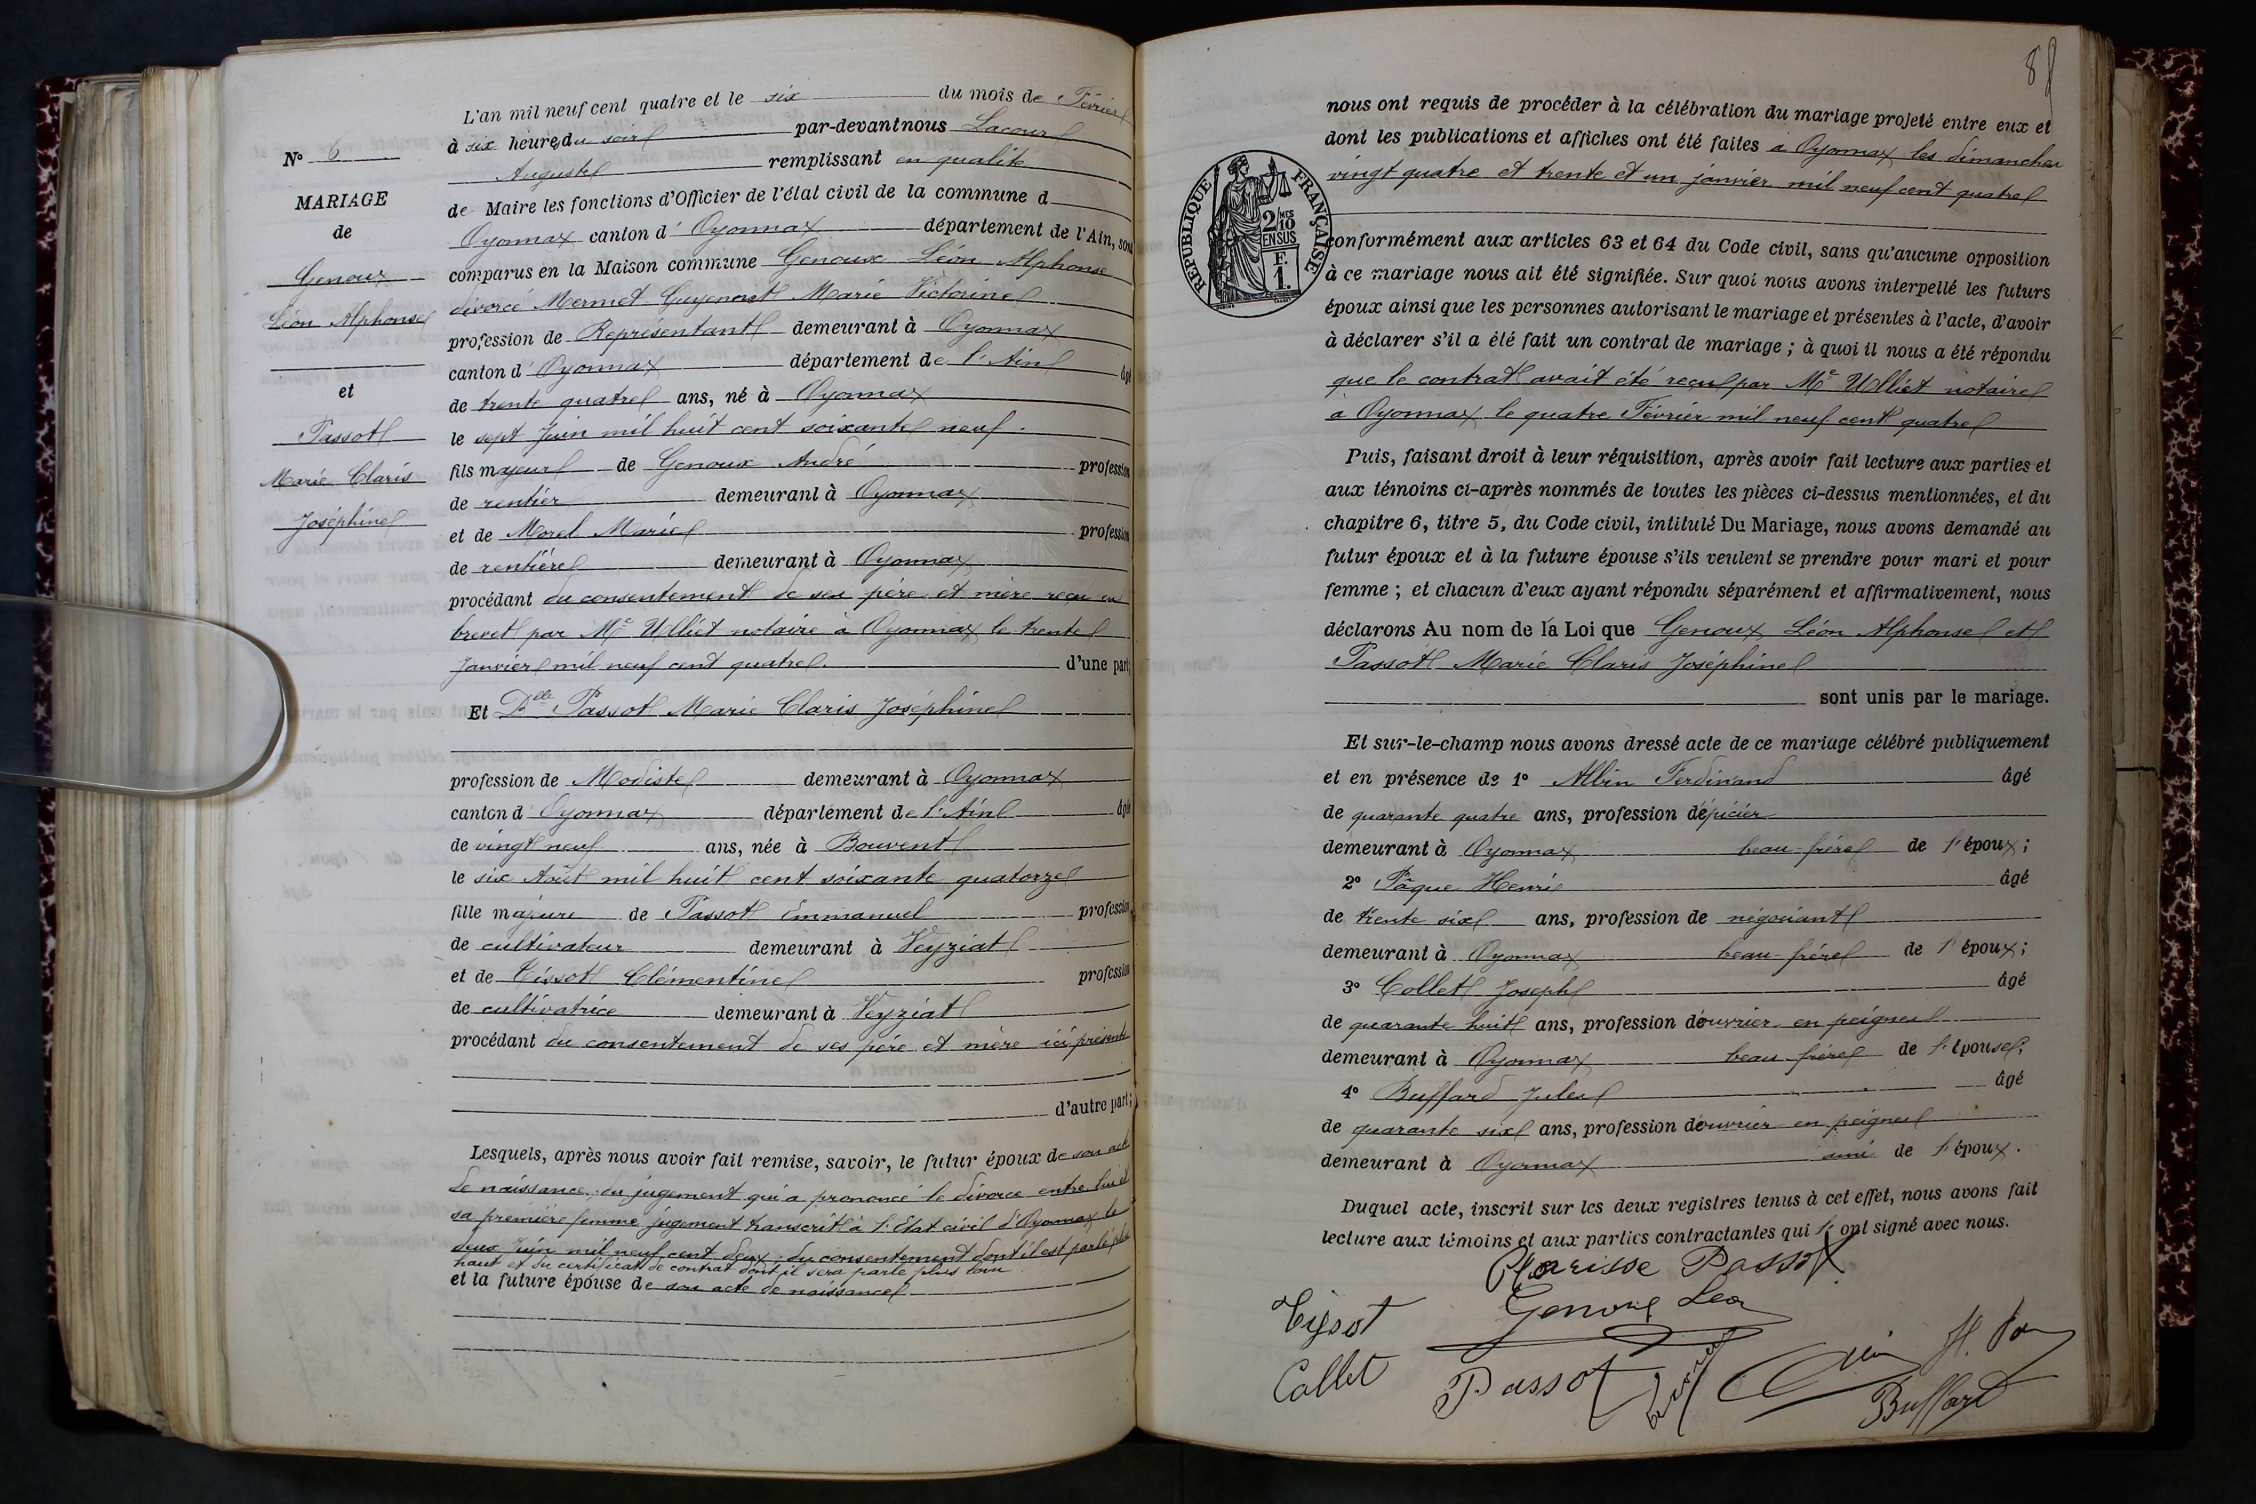 N° 6
MARIAGE
de
Genoux
Léon Alphonse
et
Passot
Marie Claris
Joséphine
L'an mil neuf cent quatre et le six du mois de Février
à six heures du soir par-devant nous Lacour
Auguste remplissant en qualité
de Maire les fonctions d'Officier de l'état civil de la commune d
Oyonnax canton d' Oyonnax département de l'Ain, sont
comparus en la Maison commune Genoux Léon Alphonse
divorcé Mermet Guyennet Marie Victorine
profession de Représentant demeurant à Oyonnax
canton d' Oyonnax département de l'Ain âgé
de trente quatre ans, né à Oyonnax
le sept Juin mil huit cent soixante neuf.
fils majeur de Genoux André profession
de rentier demeurant à Oyonnax
et de Morel Marie profession
de rentière demeurant à Oyonnax
procédant du consentement de ses père et mère reçu en
brevet par Me Ulliet notaire à Oyonnax le trente
Janvier mil neuf cent quatre. d'une part;
Et Delle Passot Marie Claris Joséphine
profession de Modiste demeurant à Oyonnax
canton d' Oyonnax département de l'Ain âgée
de vingt neuf ans, née à Bouvent
le six Août mil huit cent soixante quatorze
fille majeure de Passot Emmanuel profession
de cultivateur demeurant à Veyziat
et de Tissot Clémentine profession
de cultivatrice demeurant à Veyziat
procédant du consentement de ses père et mère ici présents
d'autre part;
Lesquels, après nous avoir fait remise, savoir, le futur époux de son acte
de naissance, du jugement qui a prononcé le divorce entre lui et
sa première femme jugement transcrit à l'Etat civil d'Oyonnax le
deux Juin mil neuf cent deux; du consentement dont il est parlé plus
haut et du certificat de contrat dont il sera parlé plus loin.
et la future épouse de son acte de naissance
8
RÉPUBLIQUE FRANÇAISE
2/10 MES
EN SUS
F.
1.
nous ont requis de procéder à la célébration du mariage projeté entre eux et
dont les publications et affiches ont été faites à Oyonnax les dimanches
vingt quatre et trente et un janvier mil neuf cent quatre
conformément aux articles 63 et 64 du Code civil, sans qu'aucune opposition
à ce mariage nous ait été signifiée. Sur quoi nous avons interpellé les futurs
époux ainsi que les personnes autorisant le mariage et présentes à l'acte, d'avoir
à déclarer s'il a été fait un contrat de mariage; à quoi il nous a été répondu
que le contrat avait été reçu par Me Ulliet notaire
à Oyonnax le quatre Février mil neuf cent quatre
Puis, faisant droit à leur réquisition, après avoir fait lecture aux parties et
aux témoins ci-après nommés de toutes les pièces ci-dessus mentionnées, et du
chapitre 6, titre 5, du Code civil, intitulé Du Mariage, nous avons demandé au
futur époux et à la future épouse s'ils veulent se prendre pour mari et pour
femme; et chacun d'eux ayant répondu séparément et affirmativement, nous
déclarons Au nom de la Loi que Genoux Léon Alphonse et
Passot Marie Claris Joséphine
sont unis par le mariage.
Et sur-le-champ nous avons dressé acte de ce mariage célébré publiquement
et en présence de 1° Albin Ferdinand âgé
de quarante quatre ans, profession d'épicier
demeurant à Oyonnax beau-frère de l'époux;
2° Pâque Henri âgé
de trente six ans, profession de négociant
demeurant à Oyonnax beau-frère de l'époux;
3° Collet Joseph âgé
de quarante huit ans, profession d'ouvrier en peignes
demeurant à Oyonnax beau frère de l'épouse;
4° Buffard Jules âgé
de quarante six ans, profession d'ouvrier en peignes
demeurant à Oyonnax ami de l'époux.
Duquel acte, inscrit sur les deux registres tenus à cet effet, nous avons fait
lecture aux témoins et aux parties contractantes qui l' ont signé avec nous.
Clarisse Passot
Tissot Genoux Léon
Collet Passot
Buffard